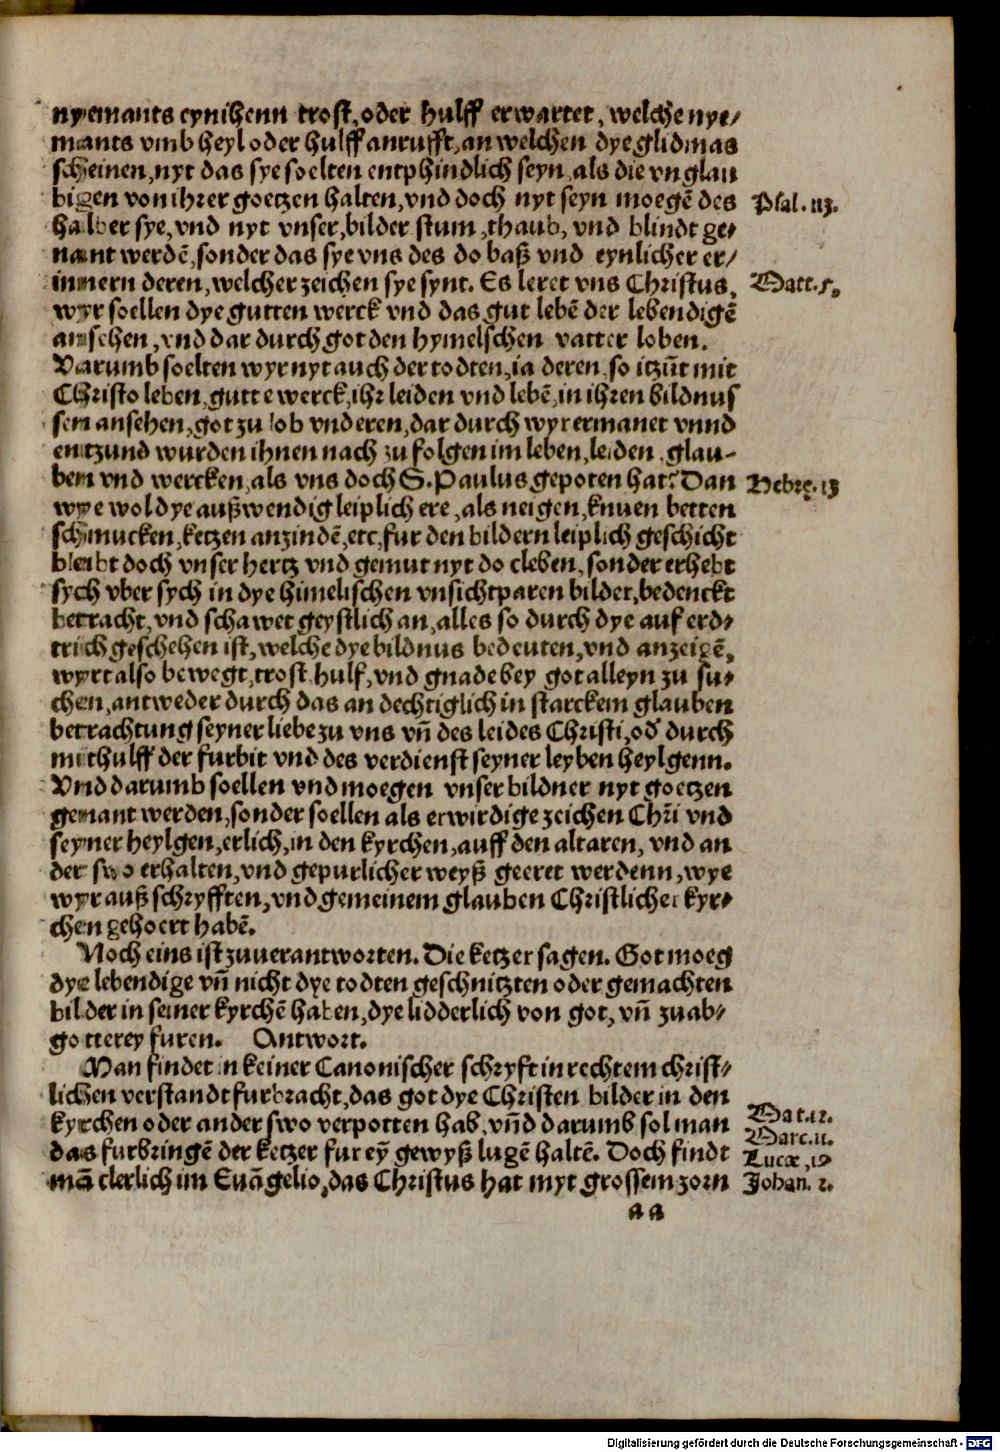 nyemants eynihenn trost, oder hulff erwartet, welche nye⸗
mants vmb heyl oder hulff anrufft, an welchen dye glidmas
scheinen, nyt das sye soelten entphindlich seyn, als die vnglau
bigen von ihrer goetzen halten, vnd doch nyt seyn moegē des
halber sye, vnd nyt vnser, bilder stum, thaub, vnd blindt ge⸗
nant werdē, sonder das sye vns des do baß vnd eynlicher er⸗
innern deren, welcher zeichen sye synt. Es leret vns Christus,
wyr soellen dye gutten werck vnd das gut lebē der lebendigē
ansehen, vnd dar durch got den hymelschen vatter loben.
Warumb soelten wyr nyt auch der todten, ia deren, so itzūt mit
Christo leben, gutte werck, ihr leiden vnd lebē, in ihren bildnuß
sen ansehen, got zu lob vnd eren, dar durch wyr ermanet vnnd
entzund wurden ihnen nach zu folgen im leben, leiden, glau-
ben vnd wercken, als vns doch S. Paulus gepoten hat? Dan
wye wol dye außwendig leiplich ere, als neigen, knuen betten
schmucken, ketzen anzindē, etc, fur den bildern leiplich geschicht
bleibt doch vnser hertz vnd gemut nyt do cleben, sonder erhebt
sych vber sych in dye himelischen vnsichtparen bilder, bedenckt
betracht, vnd schawet geystlich an, alles so durch dye auf erd⸗
trich geschehen ist, welche dye bildnus bedeuten, vnd anzeigē,
wyrt also bewegt, trost hulf, vnd gnade bey got alleyn zu su⸗
chen, antweder durch das an dechtiglich in starckem glauben
betrachtung seyner liebe zu vns vñ des leides Christi, oď durch
mithulff der furbit vnd des verdienst seyner leyben heylgenn.
Vnd darumb soellen vnd moegen vnser bildner nyt goetzen
genant werden, sonder soellen als erwirdige zeichen Chr̄i vnd
seyner heylgen, erlich, in den kyrchen, auff den altaren, vnd an
der swo erhalten, vnd gepurlicher weyß geeret werdenn, wye
wyr auß schryfften, vnd gemeinem glauben Christlicher kyr⸗
chen gehoert habē.
Noch eins ist zuuerantworten. Die ketzer sagen. Got moeg
dye lebendige vñ nicht dye todten geschnitzten oder gemachten
bilder in seiner kyrchē haben, dye lidderlich von got, vñ zu ab⸗
gotterey furen. Antwort.
Man findet in keiner Canonischer schryft in rechtem christ⸗
lichen verstandt furbracht, das got dye Christen bilder in den
kyrchen oder ander swo verpotten hab, vñd darumb sol man
das furbringē der ketzer fur eȳ gewyß lugē haltē. Doch findt
mā clerlich im Euāgelio, das Christus hat myt grossem zorn
aa
Psal. 113.
Matt. 5.
Hebre. 13
Mat. 12.
Marc. 11.
Lucæ, 19
Johan. 2.
Digitalisierung gefördert durch die Deutsche Forschungsgemeinschaft - DFG